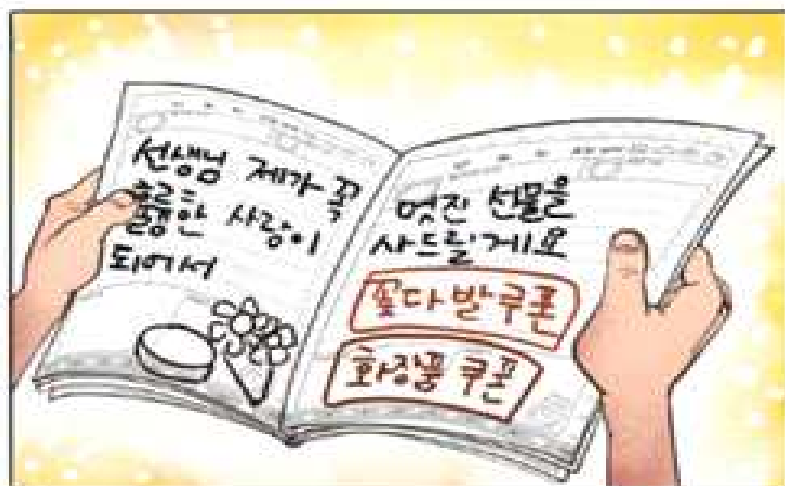 선생님 제가 꼭
사랑이
되어서
멋진 선물을
사드릴게요
꽃다발쿠폰
화장품 쿠폰